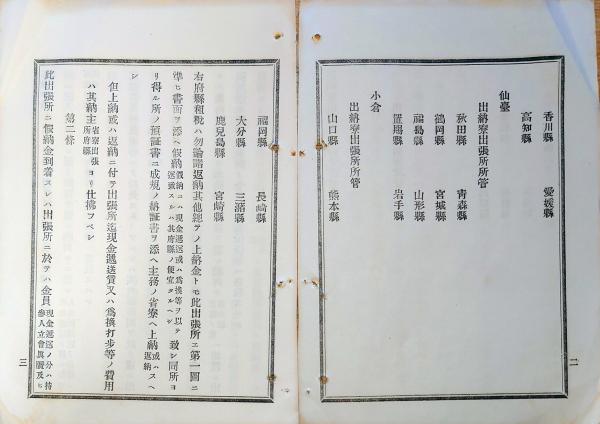 香川縣 愛媛縣
高知縣
仙臺
出納寮出張所所管
秋田縣 青森縣
鶴岡縣 宮城縣
福島縣 山形縣
置賜縣 岩手縣
小倉
出納寮出張所所管
山口縣 熊本縣
二
福岡縣 長崎縣
大分縣 三潴縣
鹿兒島縣 宮崎縣
右府縣租稅ハ勿論諸返納其他總テノ上納金トモ此出張所エ第一圖ニ
準ヒ書面ヲ添ヘ假納假納ニハ現金遞送或ハ爲換等ヲ以テ返濟スルハ其府縣ノ便宜タルヘシ致シ同所ヨ
リ得ル所ノ預証書ニ成規ノ納証書ヲ添ヘ主務ノ省寮ヘ上納或ハ返納スヘ
シ
但上納或ハ返納ニ付テ出張所迄現金遞送賃又ハ爲換打步等ノ費用
ハ其納主省寮出張所府縣ヨリ仕拂フベシ
第二條
此出張所ニ假納金到着スレハ出張所ニ於テハ金員現金遞送ノ分ハ持參人立會員數及ヒ
三